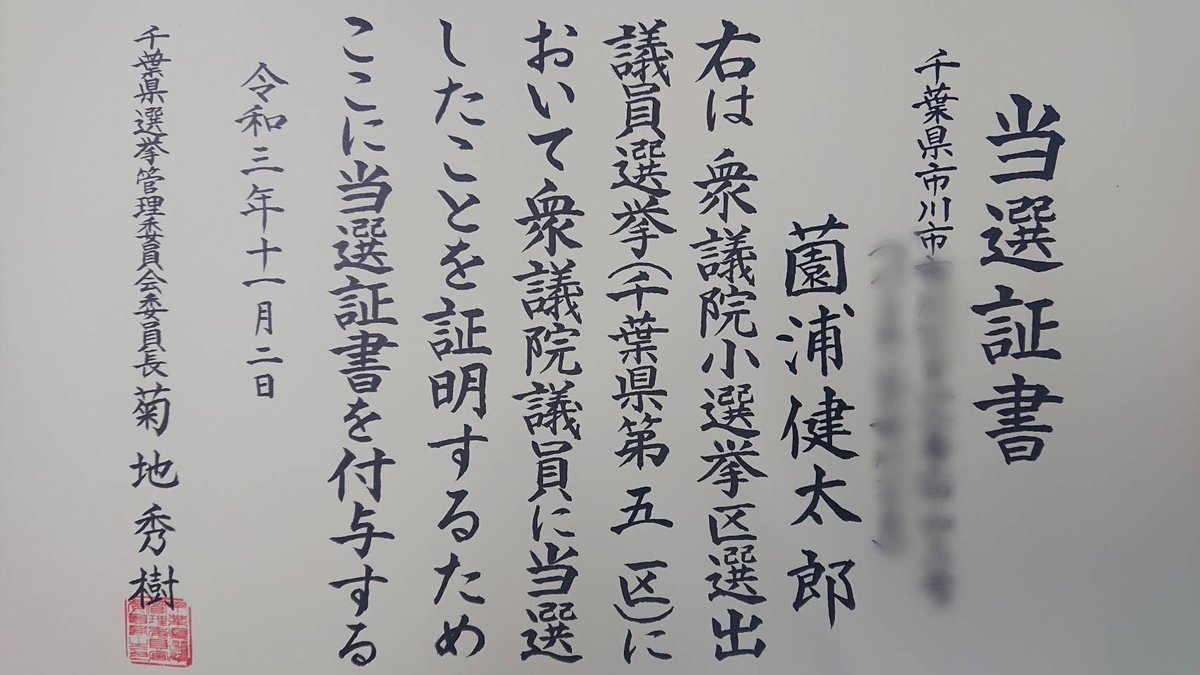 当選証書
千葉県市川市
薗浦健太郎
右は衆議院小選挙区選出
議員選挙(千葉県第五区)に
おいて衆議院議員に当選
したことを証明するため
ここに当選証書を付与する
令和三年十一月二日
千葉県選挙管理委員会委員長菊地秀樹